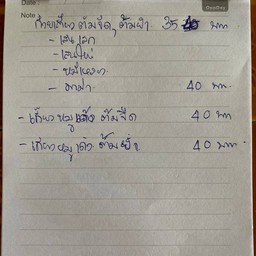 Date
Note
ก๋วยเตี๋ยวต้มจืด, ต้มยำ 35 บาท
- เส้นเล็ก
- เส้นใหญ่
- หมี่ขาว
- มาม่า 40 บาท
- เกี๊ยวหมูเด้ง ต้มจืด 40 บาท
- เกี๊ยวหมูเด้ง ต้มยำ 40 บาท